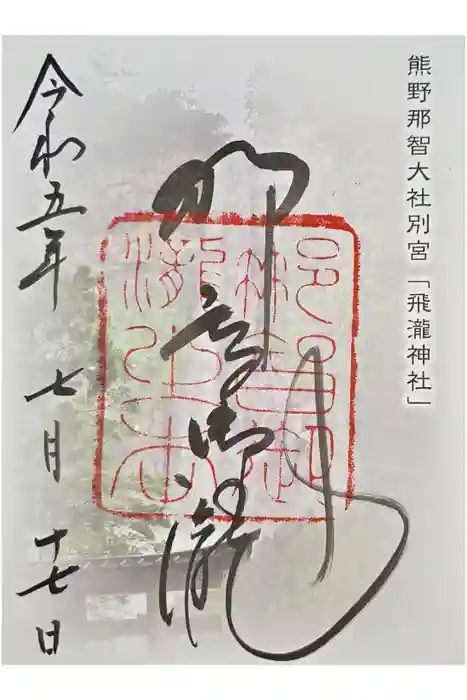 熊野那智大社別宮「飛瀧神社」
那智御瀧
令和五年 七月 十七日